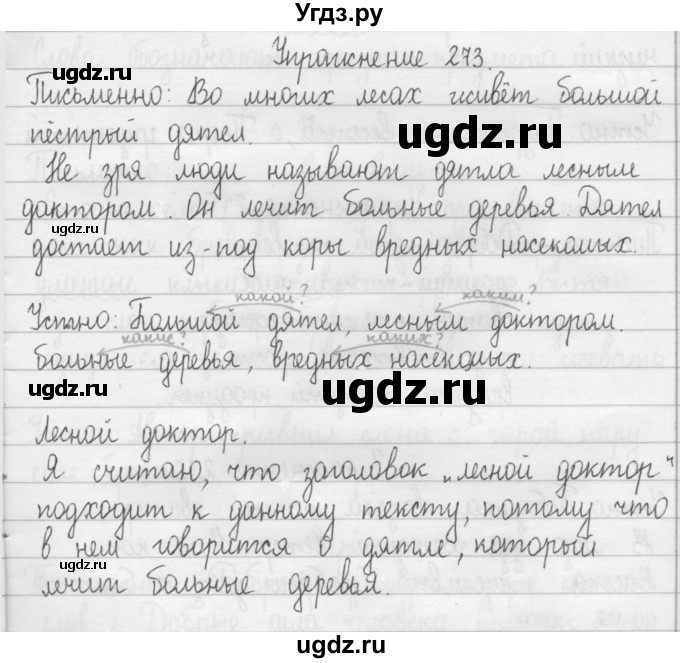 Угдз.ру
Упражнение 273.
Письменно: Во многих лесах живёт большой
пёстрый дятел.
Не зря люди называют дятла лесным
доктором Он лечит больные деревья Дятел
достает из-под коры вредных насекомых.
какой? каким?
Устно: Большой дятел, лесным доктором.
какие? каких?
больные деревья, вредных насекомых.
Лесной доктор.
Я считаю, что заголовок „лесной доктор"
подходит к данному тексту, потому что
в нем говорится о дятле, который
лечит больные деревья.
ugdz.ru
ugdz.ru
ugdz.ru
ugdz.ru
ugdz.ru
ugdz.ru
ugdz.ru
ugdz.ru